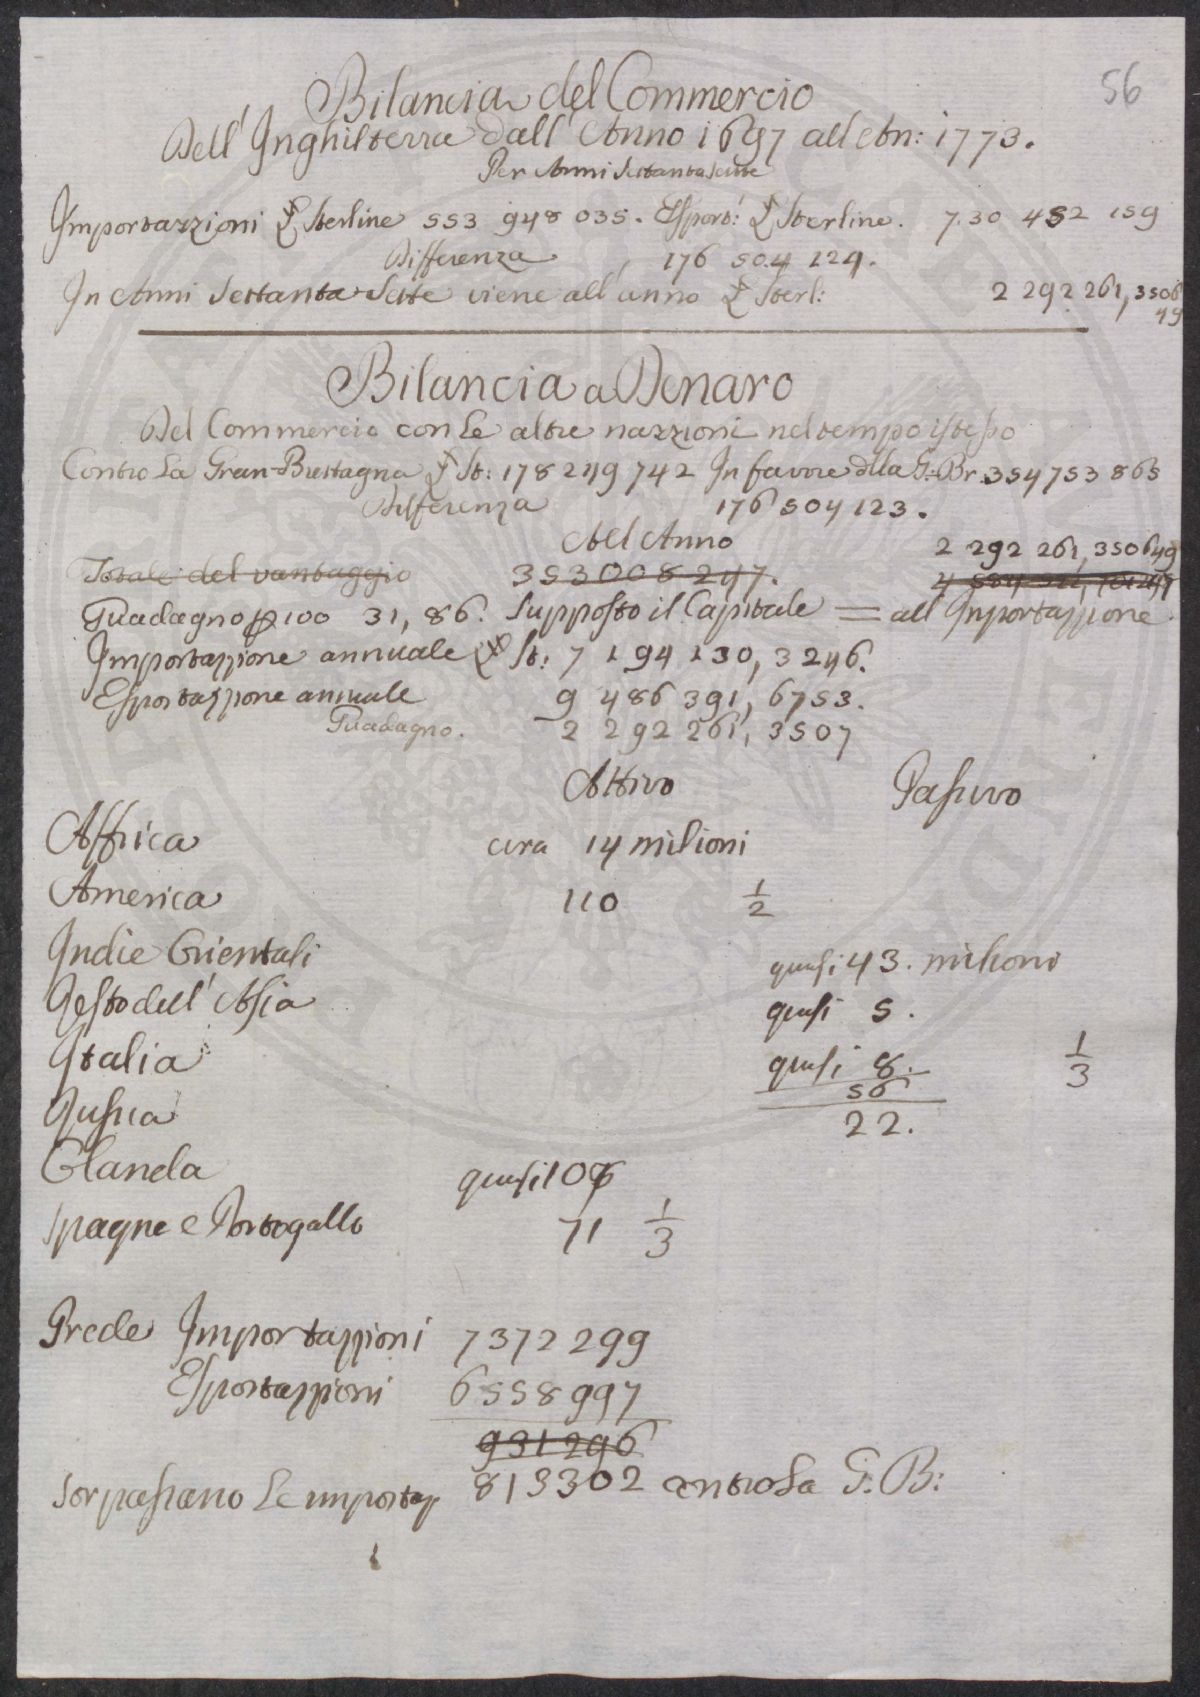 56
Bilancia del Commercio
Dell' Inghilterra dall' Anno 1697 all An: 1773.
Per Anni Settantasette
Importazzioni £ Sterline 553 948 035. Esport: £ Sterline. 7.30 452 159
Differenza 176 504 124.
In Anni Settanta Sette viene all' anno £ Sterl: 2 292 261, 3506
49
Bilancia a Denaro
Del Commercio con Le altre nazzioni nel tempo istesso
Contro La Gran-Brettagna £ St: 178 249 742 In favore della G: Br. 354 753 865
Differenza 176 504 123.
All Anno 2 292 261, 350649
Totale del vantaggio 353008247.
Guadagno p 100 31, 86. Supposto il Capitale = all Importazzione
Importazzione annuale £ St: 7 194 130, 3246.
Esportazzione annuale 9 486 391, 6753.
Guadagno. 2 292 261, 3507
Attivo Passivo
Affrica circa 14 milioni
America 110 1/2
Indie Orientali quasi 43. milioni
Resto dell' Asia quasi 5.
Italia quasi 8. 1/3
56
Russia 22.
Olanda quasi 106
Spagne e Portogallo 71 1/3
Prede Importazzioni 7372 299
Esportazzioni 6558 997
931296
Sorpassano Le importaz 813302 contro La G: B: